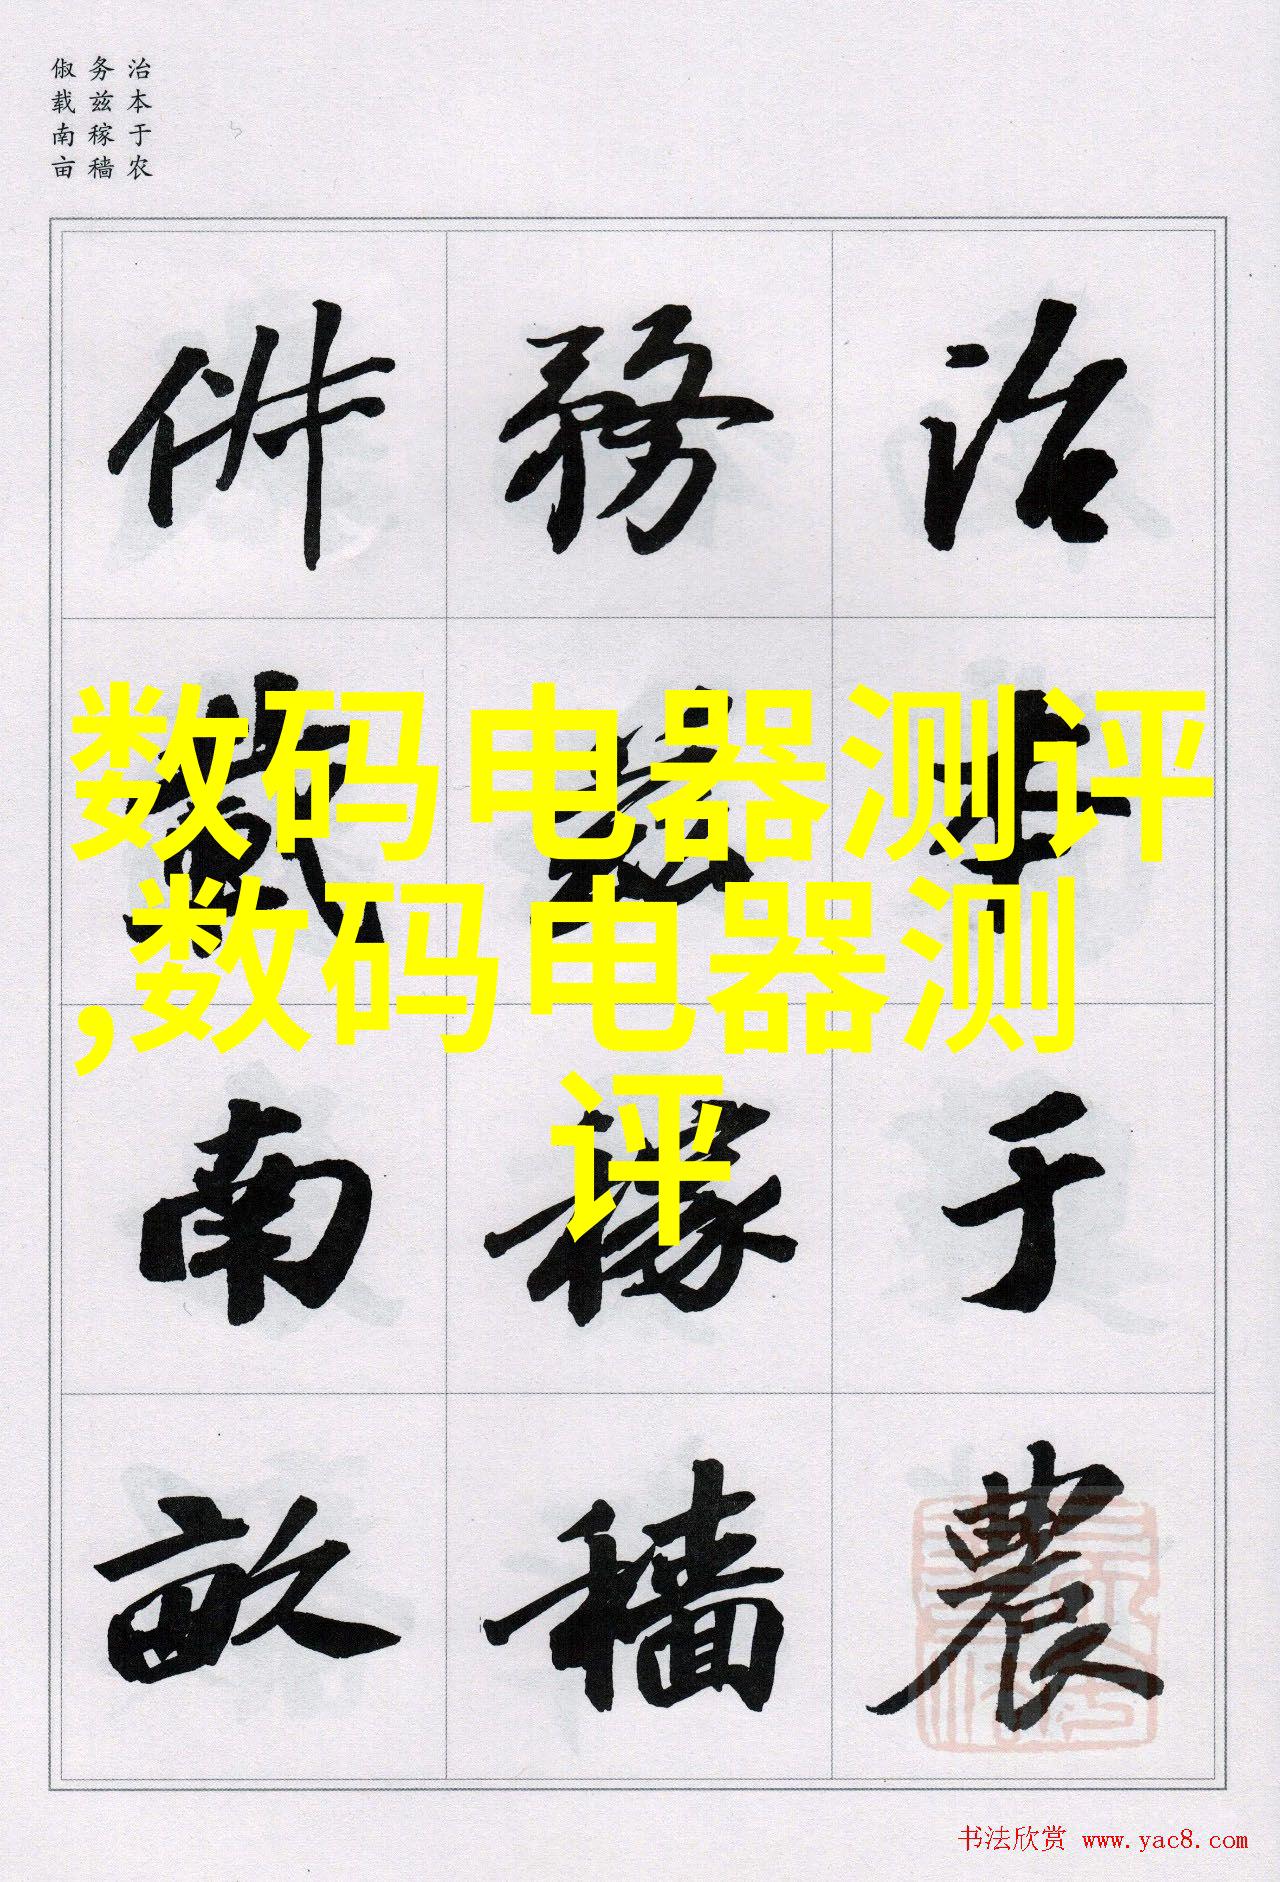 治本于农
务兹稼穑
俶载南亩
治本于農
務茲稼穡
俶載南畝
数码电器测评
,数码电器测
评
书法欣赏 www.yac8.com